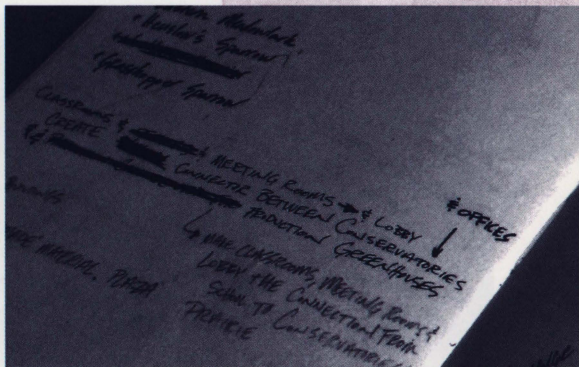 Meadowlark
• Henslow's Sparrow
• Grasshopper Sparrow
CLASSROOMS & & MEETING ROOMS & LOBBY & OFFICES
CREATE CONNECTOR BETWEEN CONSERVATORIES
&
PRODUCTION GREENHOUSES
MAKE CLASSROOMS, MEETING ROOMS &
LOBBY THE CONNECTION FROM
SCHOOL TO CONSERVATORIES
PRAIRIE
MATERIAL, PLAZA